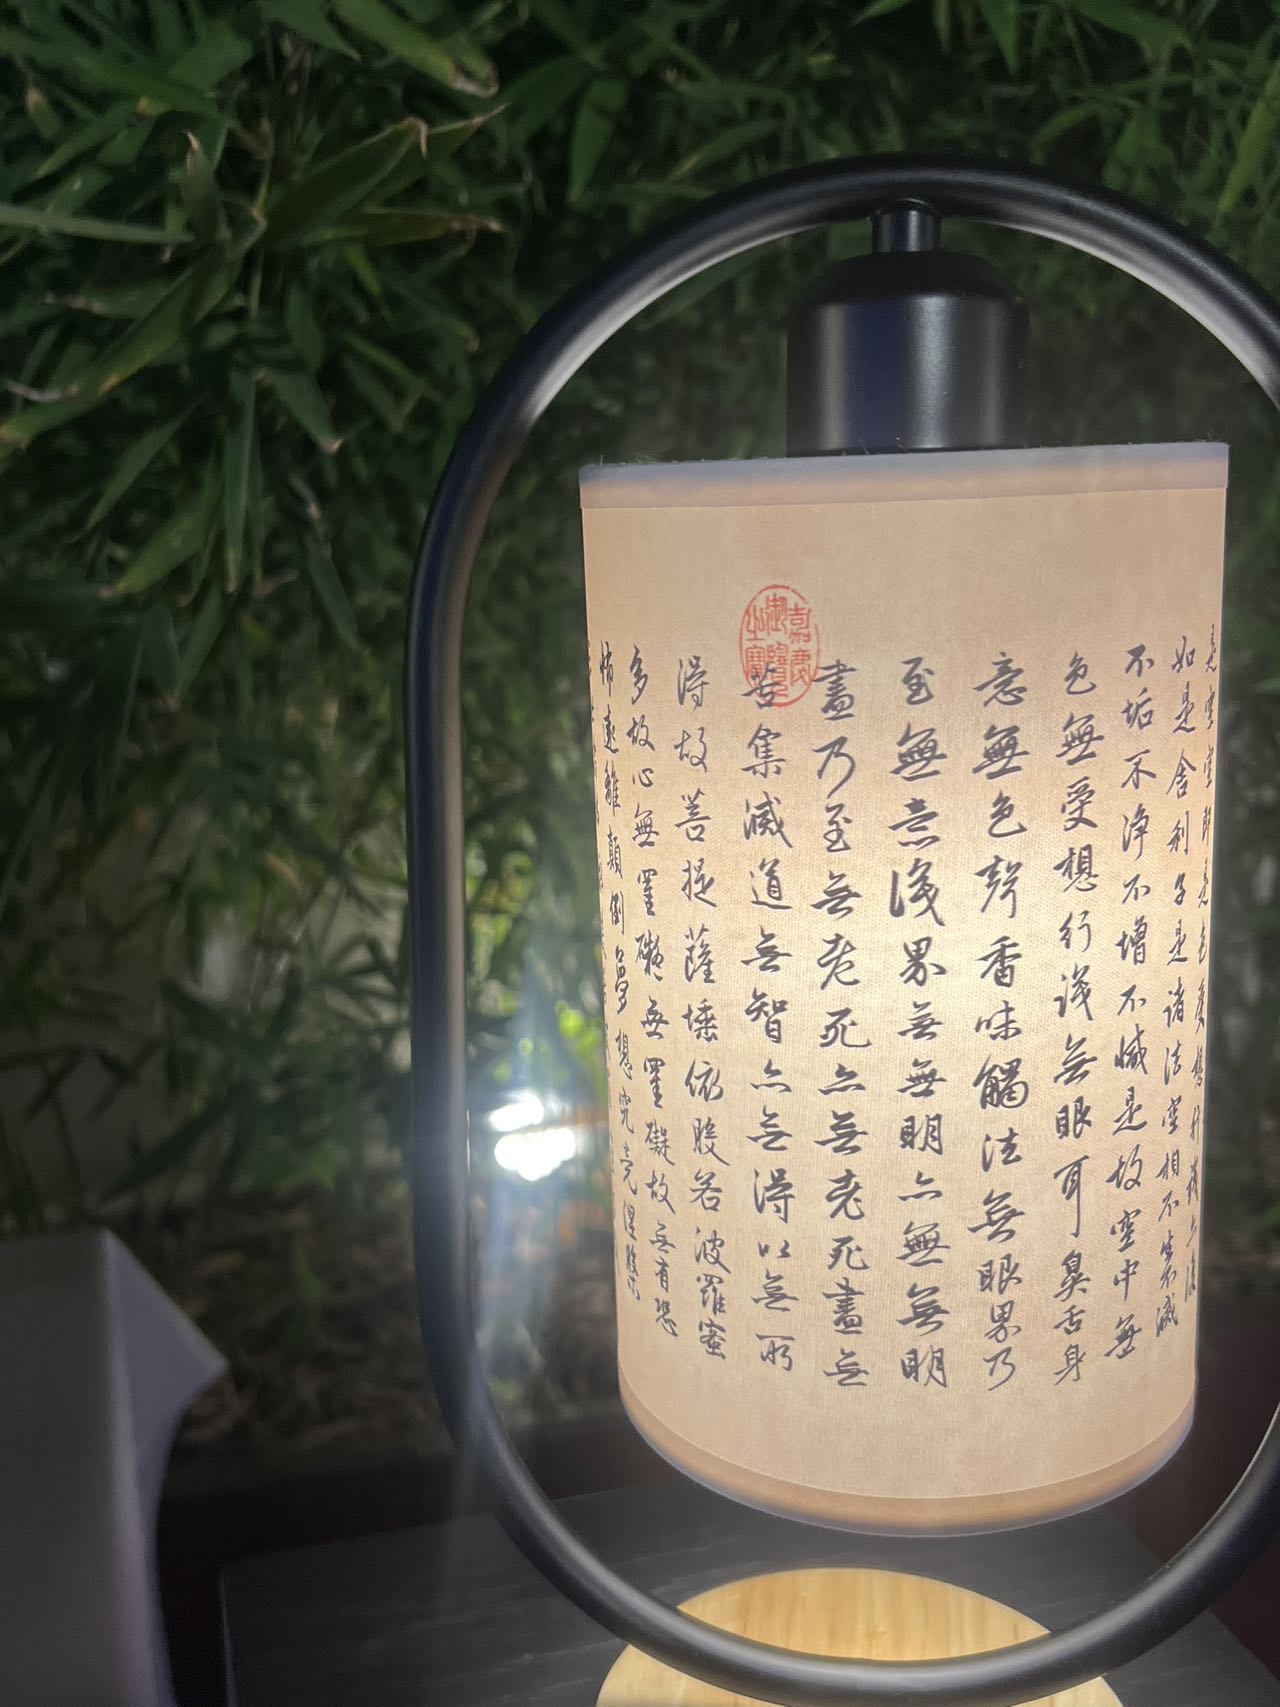 是空空即是色受想行識亦復
如是舍利子是諸法空相不生不滅
不垢不淨不增不減是故空中無
色無受想行識無眼耳鼻舌身
意無色聲香味觸法無眼界乃
至無意識界無無明亦無無明
盡乃至無老死亦無老死盡無
苦集滅道無智亦無得以無所
得故菩提薩埵依般若波羅蜜
多故心無罣礙無罣礙故無有恐
怖遠離顛倒夢想究竟涅槃
嘉慶御覽之寶